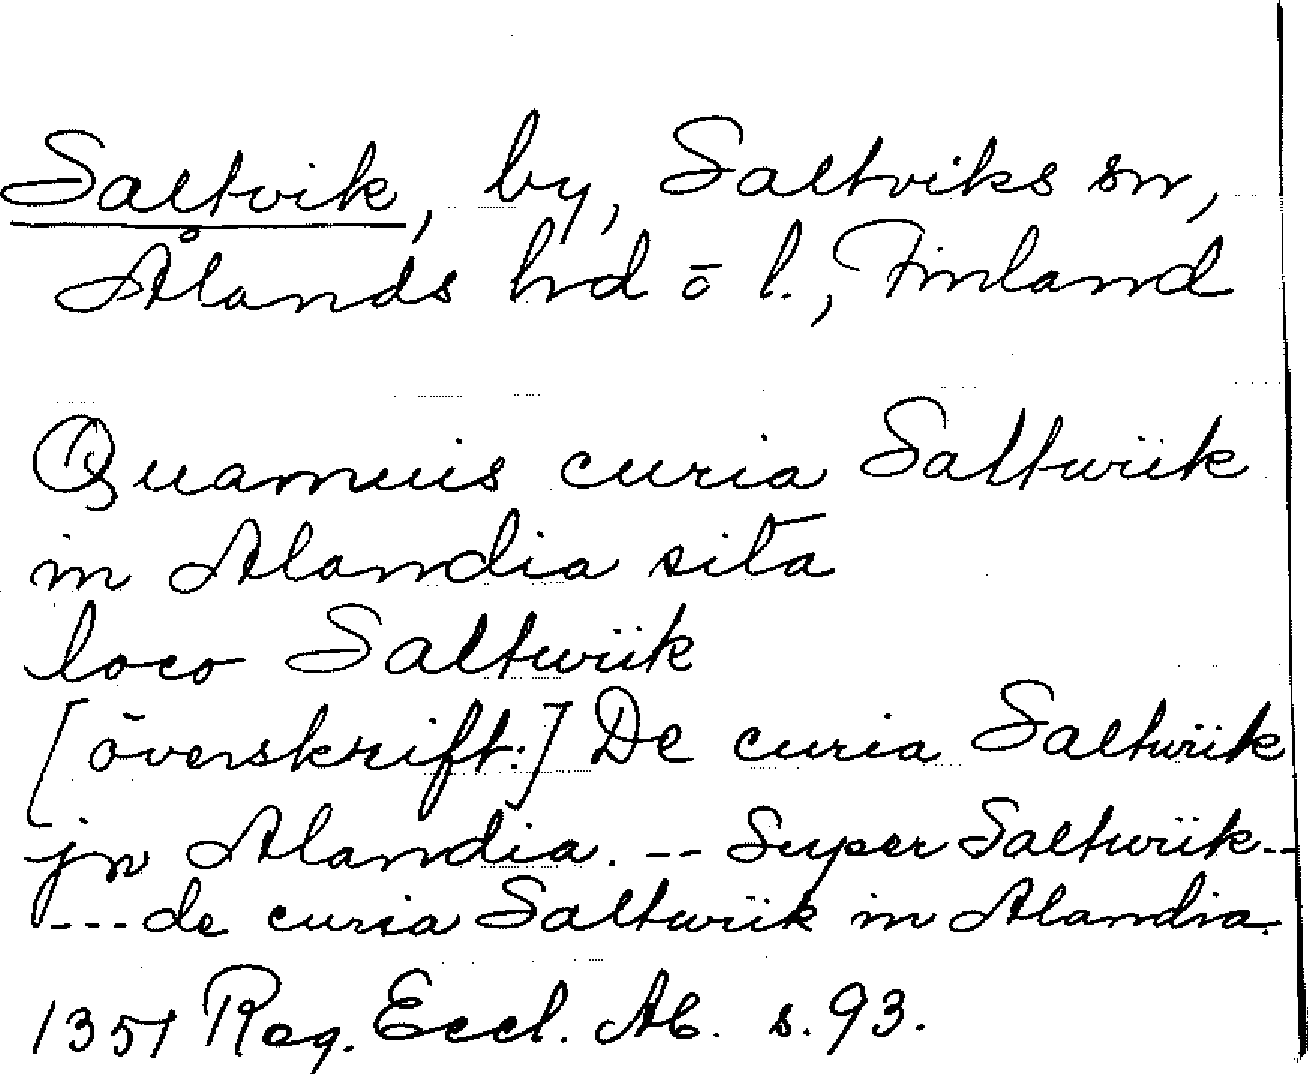 Saltvik, by, Saltviks sn,
Ålands hd o l., Finland
Quamuis curia Saltwiik
in Alandia sita
loco Saltwiik
[överskrift:] De curia Saltwiik
jn Alandia. -- Super Saltwiik --
--- de curia Saltwiik in Alandia.
1351 Reg. Eccl. Ab. s. 93.